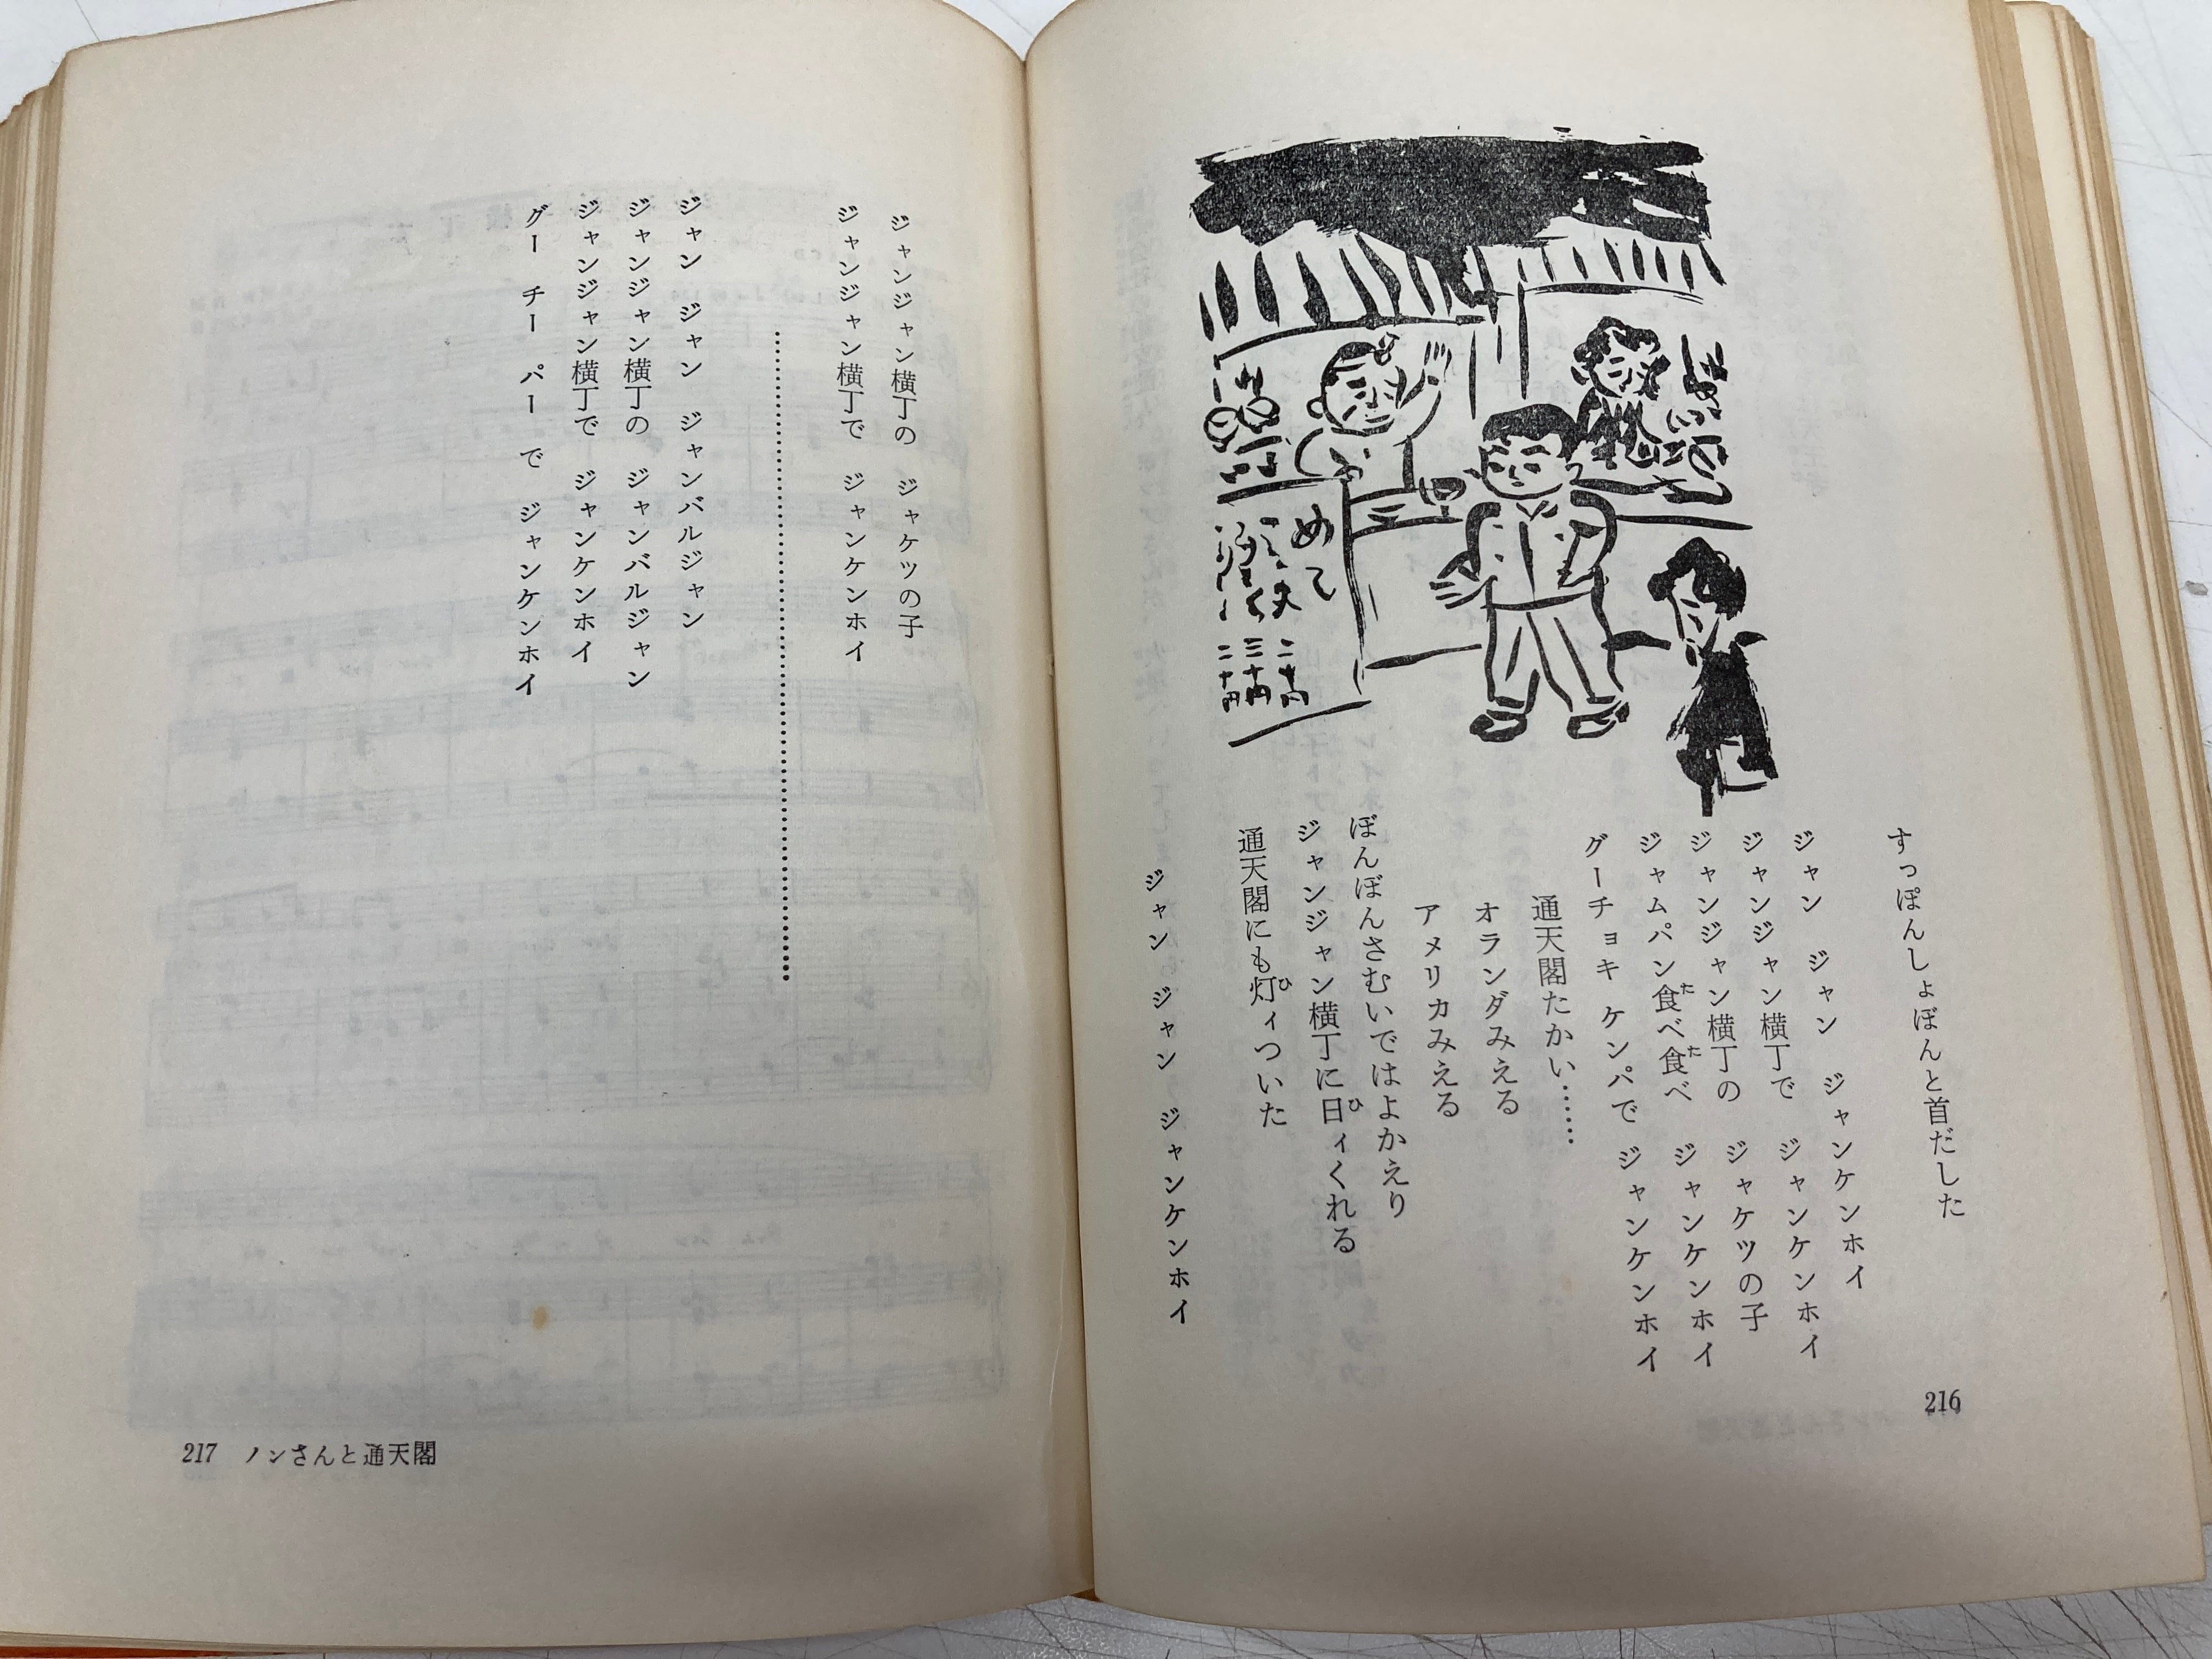 すっぽんしょぼんと首だした
ジャン ジャン ジャンケンホイ
ジャンジャン横丁で ジャンケンホイ
ジャンジャン横丁の ジャケツの子
ジャムパン食べ食べ ジャンケンホイ
グーチョキ ケンパで ジャンケンホイ
通天閣たかい……
オランダみえる
アメリカみえる
ぼんぼんさむいではよかえり
ジャンジャン横丁に日ィくれる
通天閣にも灯ィついた
ジャン ジャン ジャンケンホイ
めて
二十円
三十円
二十円
216
ジャンジャン横丁の ジャケツの子
ジャンジャン横丁で ジャンケンホイ
ジャン ジャン ジャンバルジャン
ジャンジャン横丁の ジャンバルジャン
ジャンジャン横丁で ジャンケンホイ
グー チー パー で ジャンケンホイ
217 ノンさんと通天閣